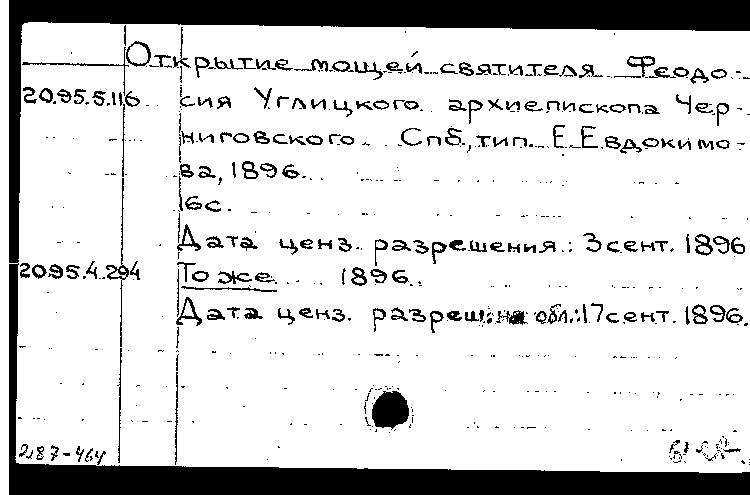 Открытие мощей святителя Феодо-
20.95.5.116 сия Углицкого архиепископа Чер-
ниговского. Спб, тип. Е. Евдокимо-
ва, 1896.
16с.
Дата ценз. разрешения: 3 сент. 1896
2095.4.294 То же 1896.
Дата ценз. разреш. на обл.: 17 сент. 1896.
2187-464